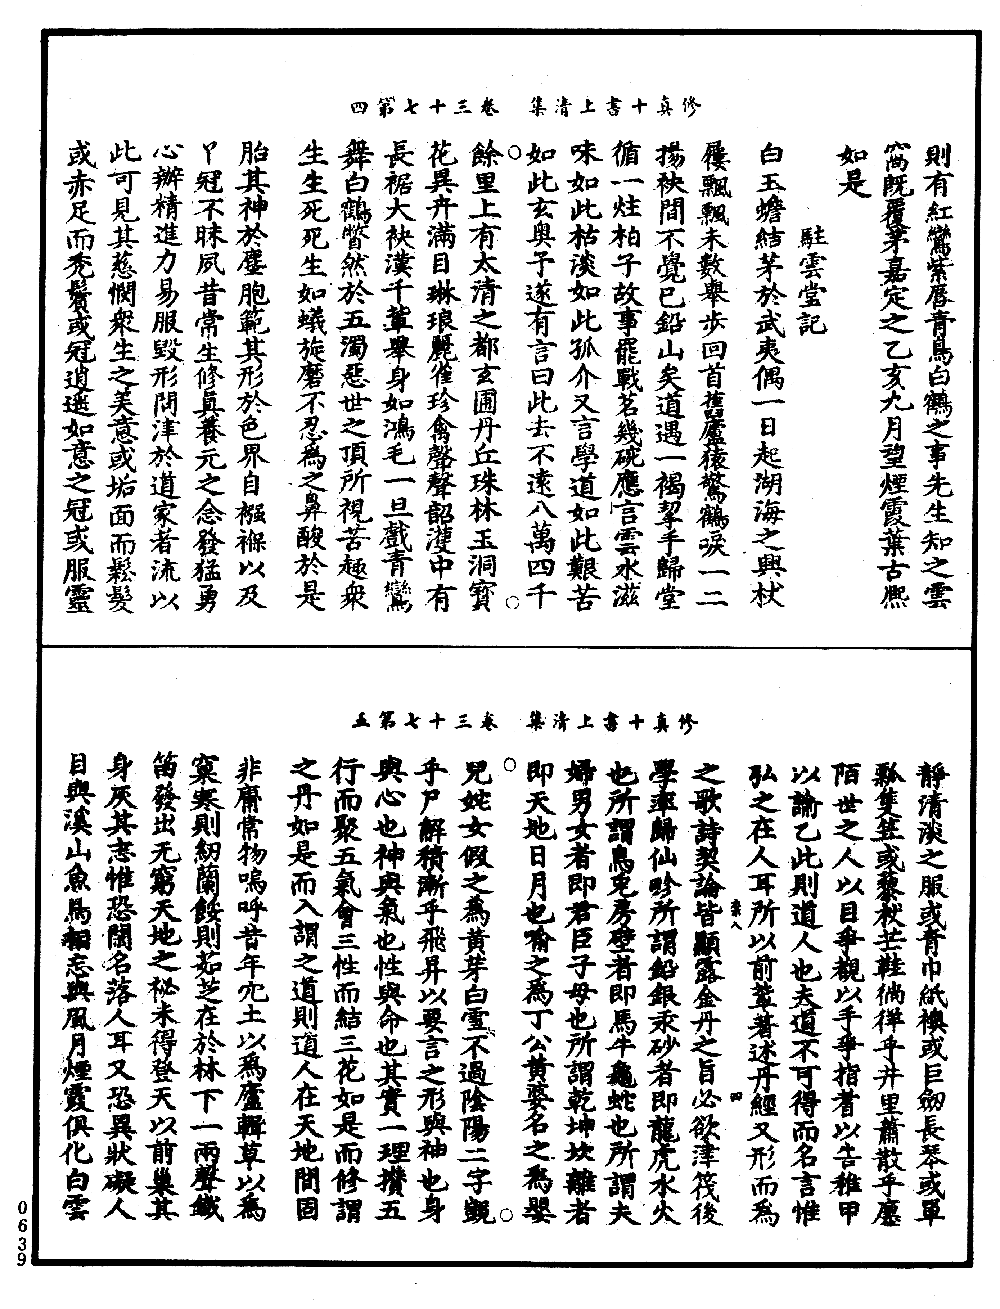 修真十書上清集　卷三十七第四
則有紅鸞紫鳳青鳥白鶴之事先生知之雲
窩既覆茅嘉定之乙亥九月望煙霞葉古熙
如是
駐雲堂記
白玉蟾結茅於武夷偶一日起湖海之興杖
屨飄飄未數舉步回首舊廬猿驚鶴唳一二
揚袂間不覺已鉛山矣道遇一褐挈手歸堂
循一炷柏子故事罷戰茗幾碗應言雲水滋
味如此枯淡如此孤介又言學道如此艱苦
如此玄奥予遂有言曰此去不遠八萬四千
餘里上有太清之都玄圃丹丘珠林玉洞寳
花異卉滿目琳琅麗雀珍禽磬聲韶濩中有
長裾大袂漢千輩舉身如鴻毛一旦戲青鸞
舞白鶴瞥然於五濁惡世之頂所視苦趣衆
生生死死生如蟻旋磨不忍爲之鼻酸於是
胎其神於塵胞範其形於色界自襁褓以及
丫冠不昧夙昔常生修眞養元之念發猛勇
心辦精進力易服毁形問津於道家者流以
此可見其慈憫衆生之美意或垢面而鬆髮
或赤足而禿鬢或冠逍遥如意之冠或服靈
修真十書上清集　卷三十七第五
靜清淡之服或青巾紙襖或巨劒長琴或單
瓢隻笠或藜杖芒鞋徜徉乎井里蕭散乎廛
陌世之人以目爭觀以手爭指者以告稚甲
以諭乙此則道人也夫道不可得而名言惟
弘之在人耳所以前輩著述丹經又形而爲
之歌詩契論皆顯露金丹之旨必欲津筏後
學率歸仙畛所謂鉛銀汞砂者即龍虎水火
也所謂烏兎房壁者即馬牛龜蛇也所謂夫
婦男女者即君臣子母也所謂乾坤坎離者
即天地日月也喻之爲丁公黃婆名之爲嬰
兒姹女假之爲黃芽白雪不過陰陽二字觀
乎尸解積漸乎飛昇以要言之形與神也身
與心也神與氣也性與命也其實一理攢五
行而聚五氣會三性而結三花如是而修謂
之丹如是而入謂之道則道人在天地間固
非庸常物嗚呼昔年宂土以爲廬輯草以爲
窠寒則紉蘭餒則茹芝在於林下一兩聲鐵
笛發出无窮天地之秘未得登天以前巢其
身灰其志惟恐閙名落人耳又恐異狀礙人
目與溪山魚鳥相忘與風月煙霞俱化白雲
0639